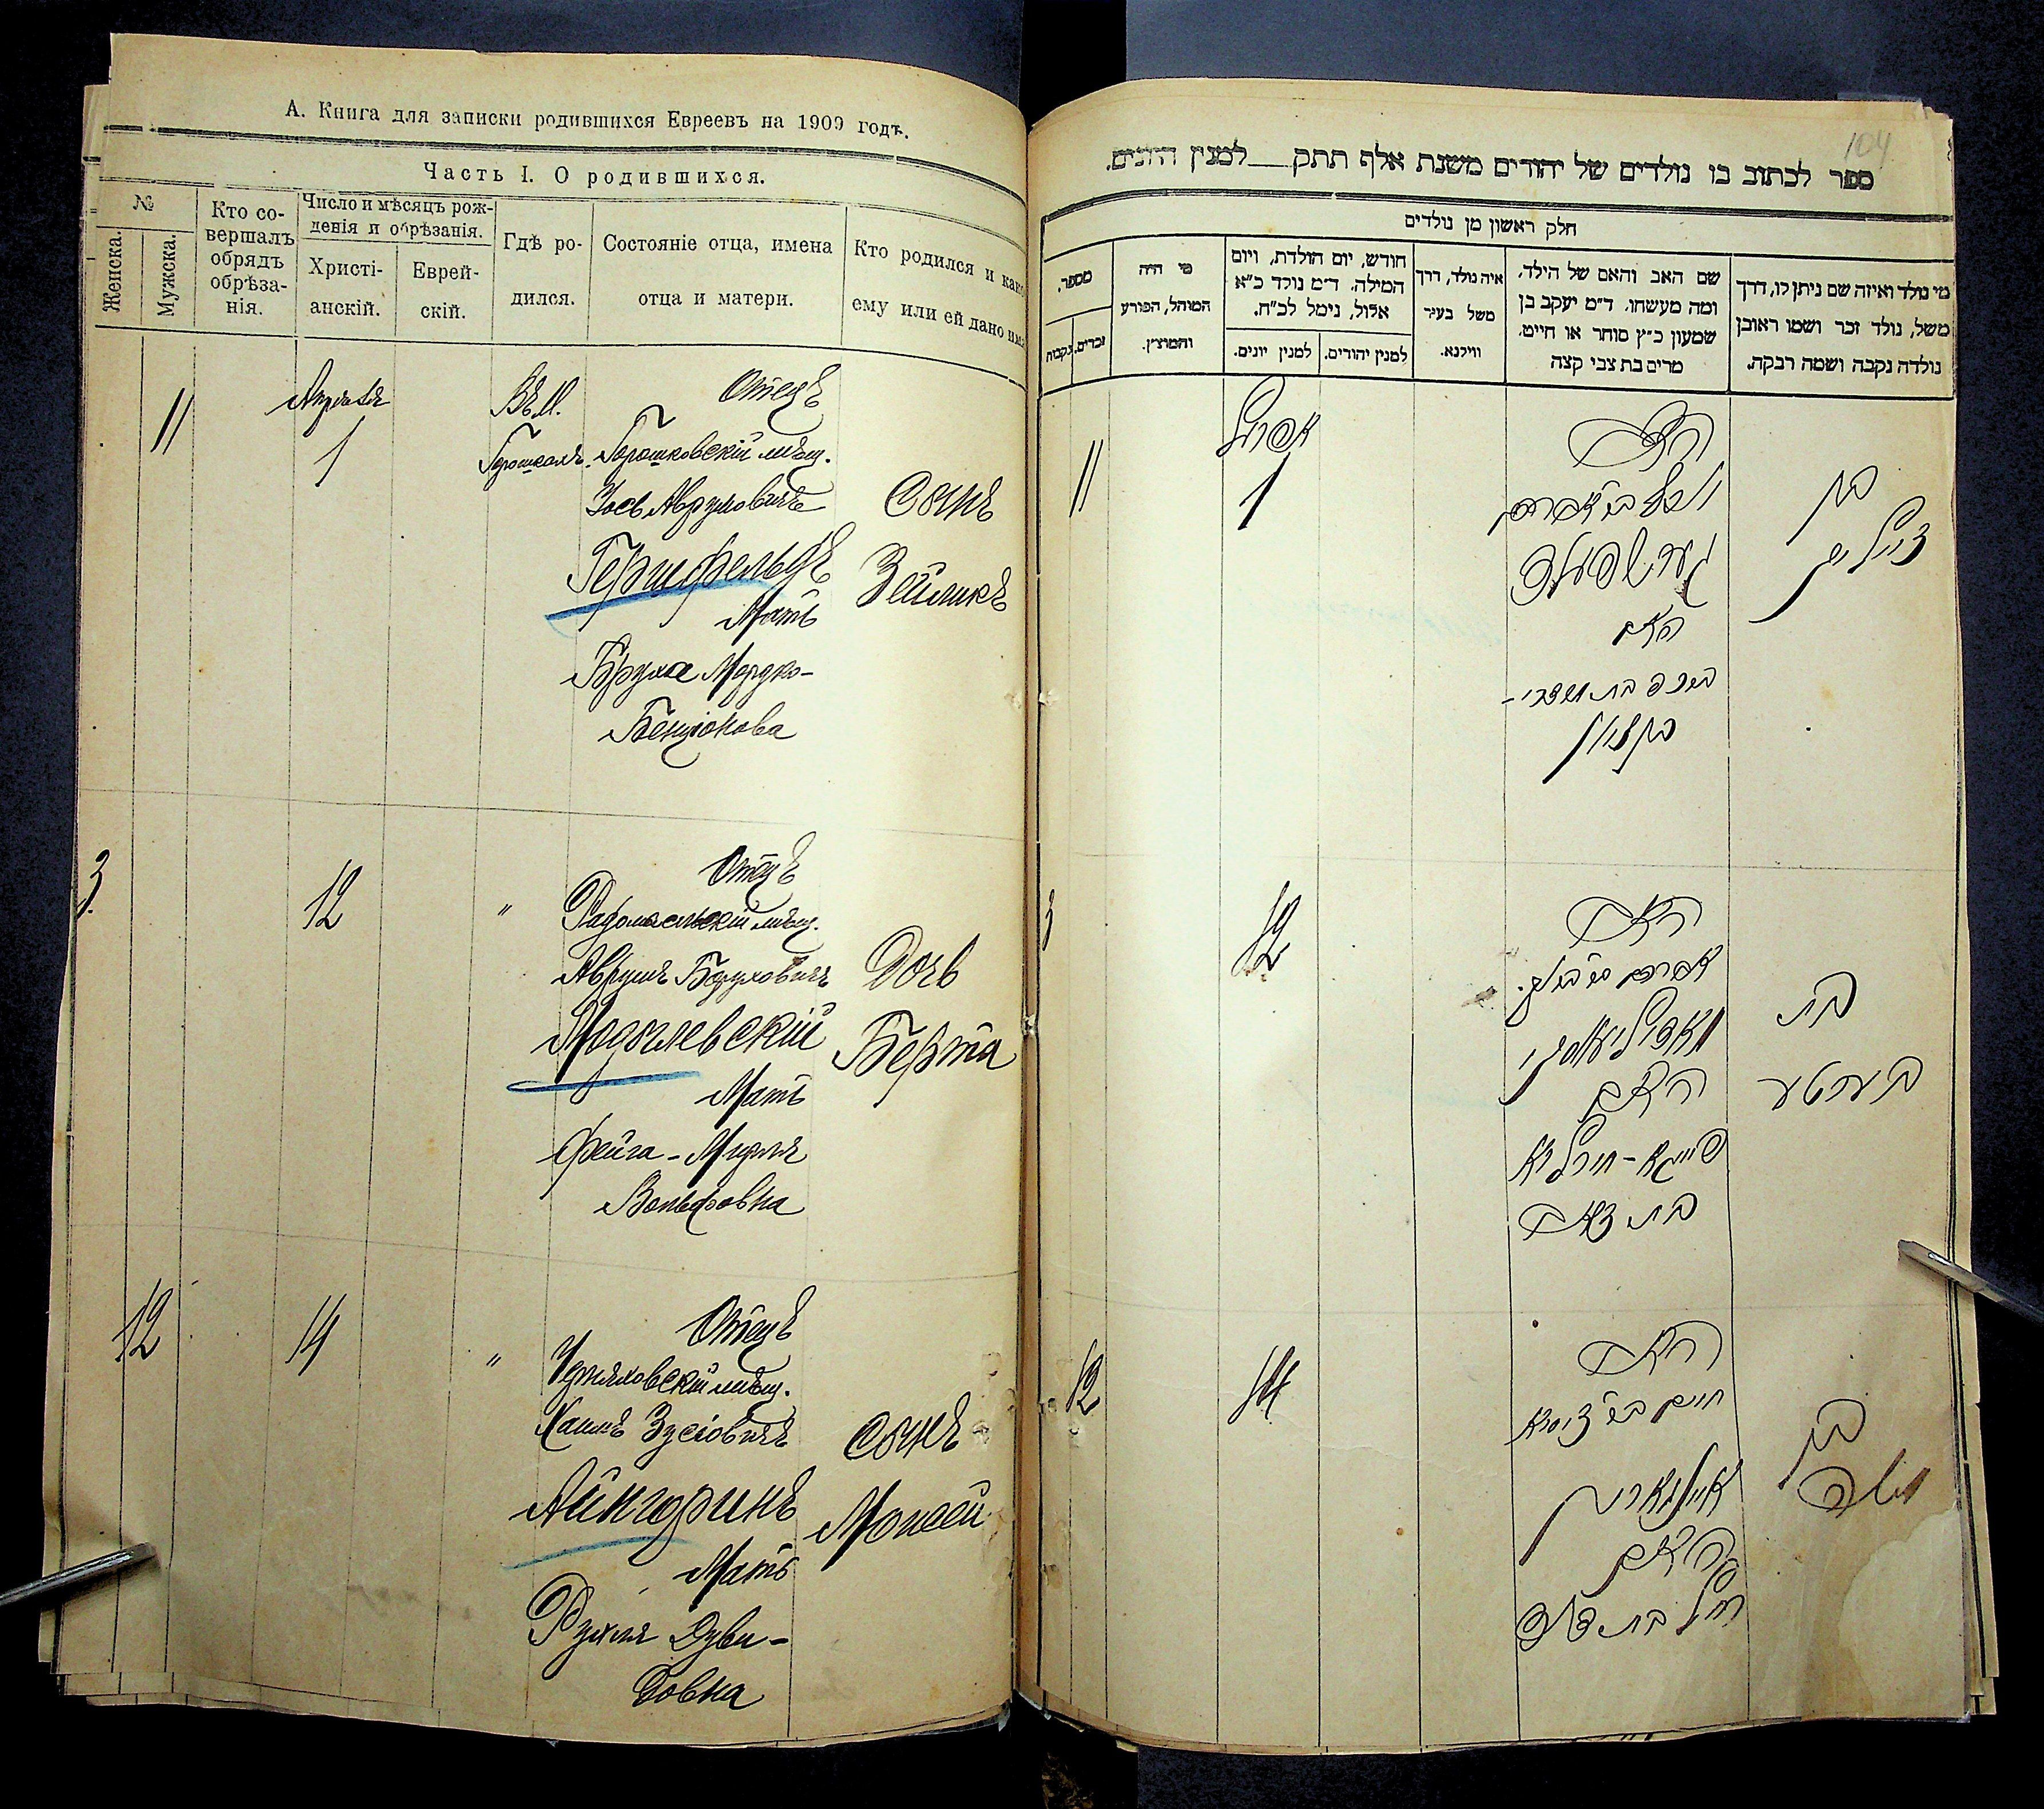 А. Книга для записки родившихся Евреевъ на 1909 годъ.
Часть I. О родившихся.
№
Женска.
Мужска.
Кто со-
вершалъ
обрядъ
обрѣза-
нія.
Число и мѣсяцъ рож-
денія и обрѣзанія.
Христі-
анскій.
Еврей-
скій.
Гдѣ ро-
дился.
Состояніе отца, имена
отца и матери.
Кто родился и како
ему или ей дано имя
11
Апрѣля
1
Въ М.
Горошкахъ.
Отецъ
Горошковскій мѣщ.
Іось Аврумовичъ
Герцфельдъ
Мать
Бруха Мордко-
Бенціонова
Сынъ
Зейликъ
3.
12
"
Отецъ
Радомысльскій мѣщ.
Аврумъ Боруховичъ
Могилевскій
Мать
Фейга-Мирля
Вольфовна
Дочь
Берта
12
14
"
Отецъ
Черняховскій мѣщ.
Хаимъ Зусіовичъ
Айнгоринъ
Мать
Рухля Дуви-
довна
Сынъ
Моисей
104
ספר לכתוב בו נולדים של יהודים משנת אלף תתק למנין היונים.
חלק ראשון מן נולדים
מספר.
נקבות
זכרים.
מי היה
המוהל, הפורע
והמוצץ.
חודש, יום הולדת, ויום
המילה. ד"מ נולד כ"א
אלול, נימל לכ"ח.
למנין יונים.
למנין יהודים.
איה נולד, דרך
משל בעיר
ווילנא.
שם האב והאם של הילד,
ומה מעשהו. ד"מ יעקב בן
שמעון כ"ץ סוחר או חייט.
מרים בת צבי קצה
מי נולד ואיזה שם ניתן לו, דרך
משל, נולד זכר ושמו ראובן
נולדה נקבה ושמה רבקה.
11
אפריל
1
האב
יוסף ב"ר אברהם
הערצפעלד
האם
ברכה בת מרדכי-
בן ציון
בן
זייליג
3
12
האב
אברהם ב"ר ברוך
מאהילעווסקי
האם
פייגא-מירליא
בת זאב
בת
בערטע
12
14
האב
חיים ב"ר זוסיא
איינגארין
האם
רחל בת דוד
בן
משה